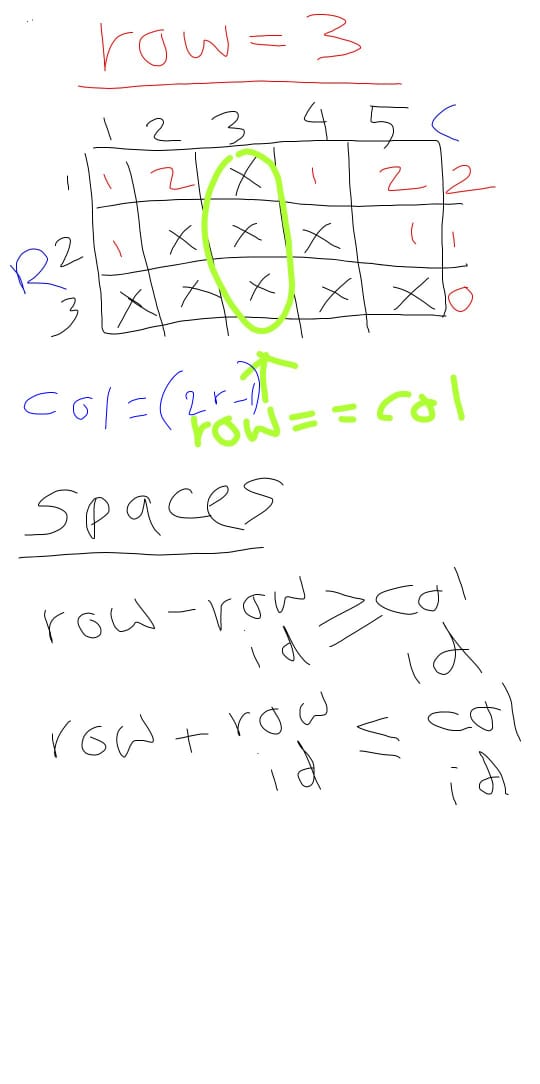 row = 3
1 2 3 4 5 C
1 1 2 X 1 2 2
R 2 1 X X X 1 1
3 X X X X X 0
col = (2r-1)
row == col
spaces
row - row id >= col id
row + row id <= col id